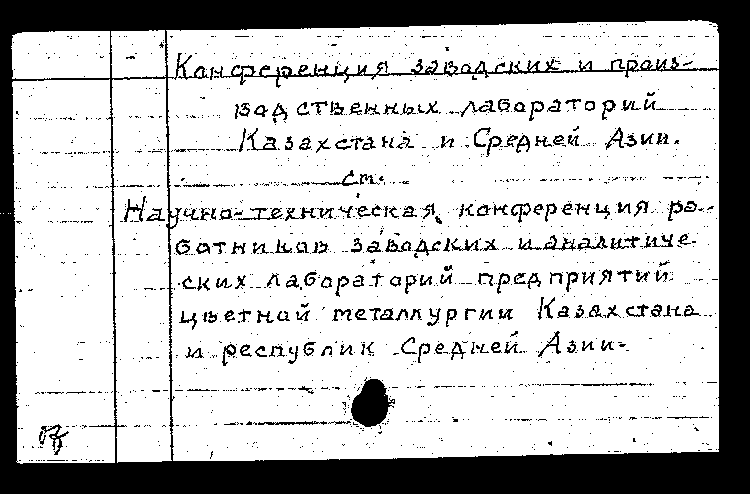 Конференция заводских и произ-
водственных лабораторий
Казахстана и Средней Азии.
см.
Научно-техническая конференция ра-
ботников заводских и аналитиче-
ских лабораторий предприятий
цветной металлургии Казахстана
и республик Средней Азии.